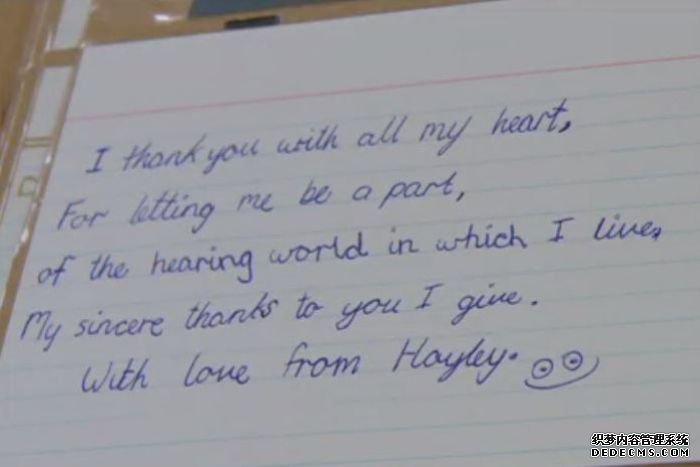 I thank you with all my heart,
For letting me be a part,
of the hearing world in which I live,
My sincere thanks to you I give.
With love from Hayley.
织梦内容管理系统
DEDECMS.COM